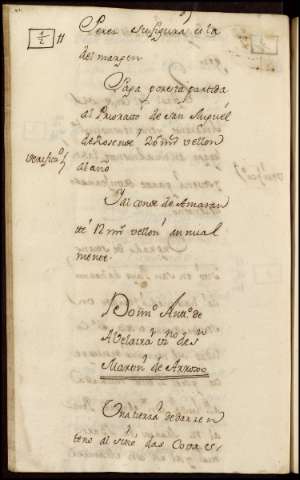 1/2 // Perez su figura es la
del margen
Paga por esta partida
al Priorato de San Miguel
de Rosende 26 mrs vellon
al año
Yal conde de Amaran
te 12 mrs vellon annual
mente
Domo. Anto. de
Abeleira vno de Sn
Martin de Arrojo
Una tierra de dar zen
teno al sitio das Cobas